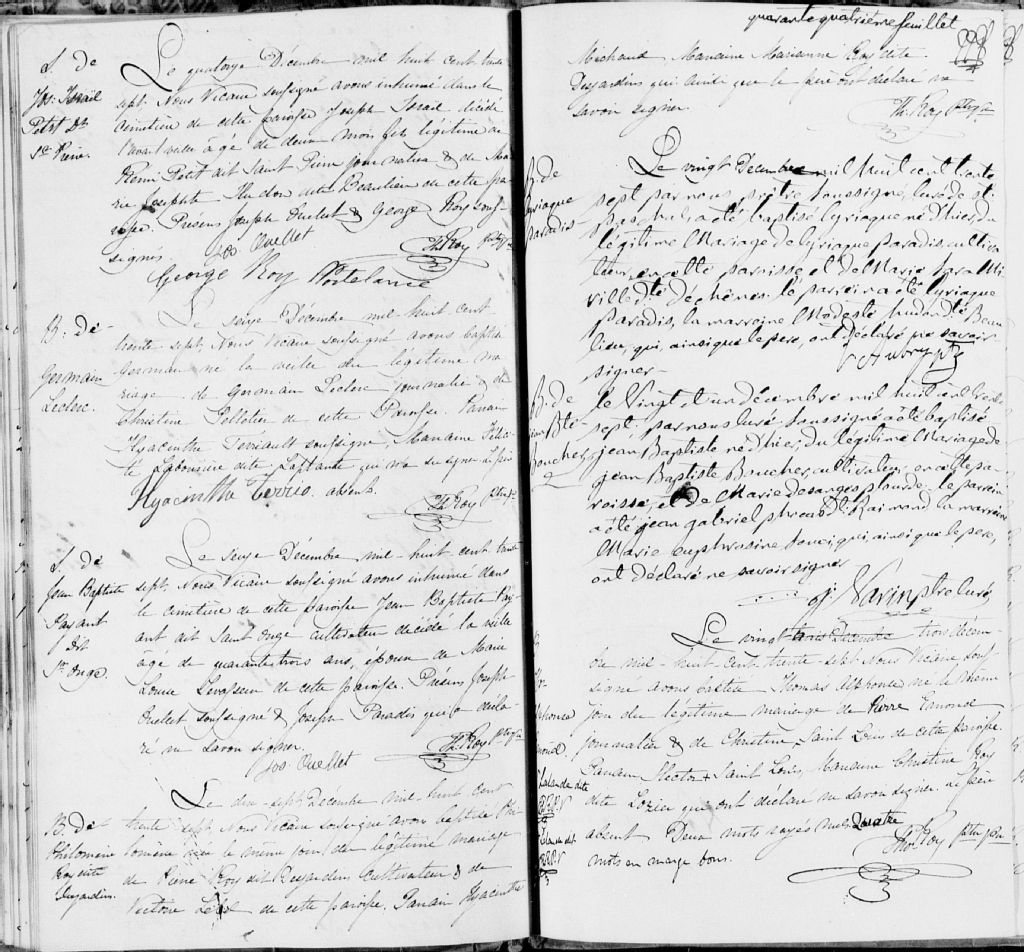 S. de
Jos: Israël
Petit dit
St. Pierre.
Le quatorze Décembre mil huit cent trente
sept, Nous Vicaire soussigné avons inhumé dans le
cimetière de cette paroisse Joseph Israël décédé
l'avant veille âgé de deux mois fils légitime de
Henri Petit dit Saint Pierre journalier & de Ma-
rie Josephte Hudon dite Beaulieu de cette pa-
roisse. Présens Joseph Ouellet & George Roy sous-
signés.
Jos Ouellet
Ths. Roy Ptre
George Roy Portelance
B. de
Germain
Leclerc.
Le seize Décembre mil-huit cent
trente-sept, Nous Vicaire soussigné avons baptisé
Germain né la veille du légitime ma
riage de Germain Leclerc journalier & de
Christine Pelletier de cette Paroisse. Parrain
Hyacinthe Terriault soussigné, Marraine Félici-
té Labonvire dite Laplante qui n'a su signer. Le père
absent.
Hyacinthe Terrio.
Ths. Roy Ptre
S. de
Jean Baptiste
Payant
dit
St. Onge.
Le seize Décembre mil-huit cent trente
sept, Nous Vicaire soussigné avons inhumé dans
le cimetière de cette paroisse Jean Baptiste Pay-
ant dit Saint Onge cultivateur décédé la veille
âgé de quarante trois ans, époux de Marie
Louise Levasseur de cette paroisse. Présens Joseph
Ouellet soussigné & Joseph Paradis qui a décla-
ré ne savoir signer.
Jos. Ouellet
Ths. Roy Ptre
B. de
Philomène
Roy dite
Desjardins.
Le dix-sept Décembre mil-huit cent
trente sept, Nous Vicaire soussigné avons baptisé Phi-
lomène née le même jour du légitime mariage
de Pierre Roy dit Desjardins cultivateur & de
Victoire Lebel de cette paroisse. Parrain Hyacinthe
quarante quatrième feuillet
Michaud Marraine Marianne Roy dite
Desjardins qui ainsi que le père ont déclaré ne
savoir signer.
Ths. Roy Ptre
B. de
Cyriaque
Paradis
Le vingt Décembre mil huit cent trente
sept par nous prêtre soussigné, curé de
a été baptisé Cyriaque né d'hier, du
légitime Mariage de Cyriaque Paradis, cultiva
teur, en cette paroisse et de Marie Sara Mi
ville dte Déchênes. le parrein a été Cyriaque
Paradis, la marreine Modeste hudon dte Beau
lieu, qui, ainsi que le pere, ont déclaré ne savoir
signer-
B. de
Jean Bte
Boucher
le Vingt, et un decembre mil huit cent trente
sept, par nous curé soussigné a été baptisé
jean Baptiste né d'hier, du légitime Mariage de
jean Baptiste Boucher, cultivateur, en cette pa-
roisse, et de Marie desanges plourde. le parrein
a été jean gabriel phocas dt Raimond la marreine
Marie euphrosine Soucy qui, ainsi que le pere,
ont déclaré ne savoir signer
J Varin ptre curé
Le vingt trois Decembre trois décem-
bre mil-huit cent trente-sept, Nous Vicaire sous-
signé avons baptisé Thomas Alphonse né le même
jour du légitime mariage de Pierre Emond
journalier & de Christine Saint Louis de cette paroisse.
Parrain Hector Saint Louis, Marraine Christine Roy
dite Lozier qui ont déclaré ne savoir signer. Le père
absent. Deux mots rayés nuls. Quatre
mots en marge bons.
Ths. Roy Ptre